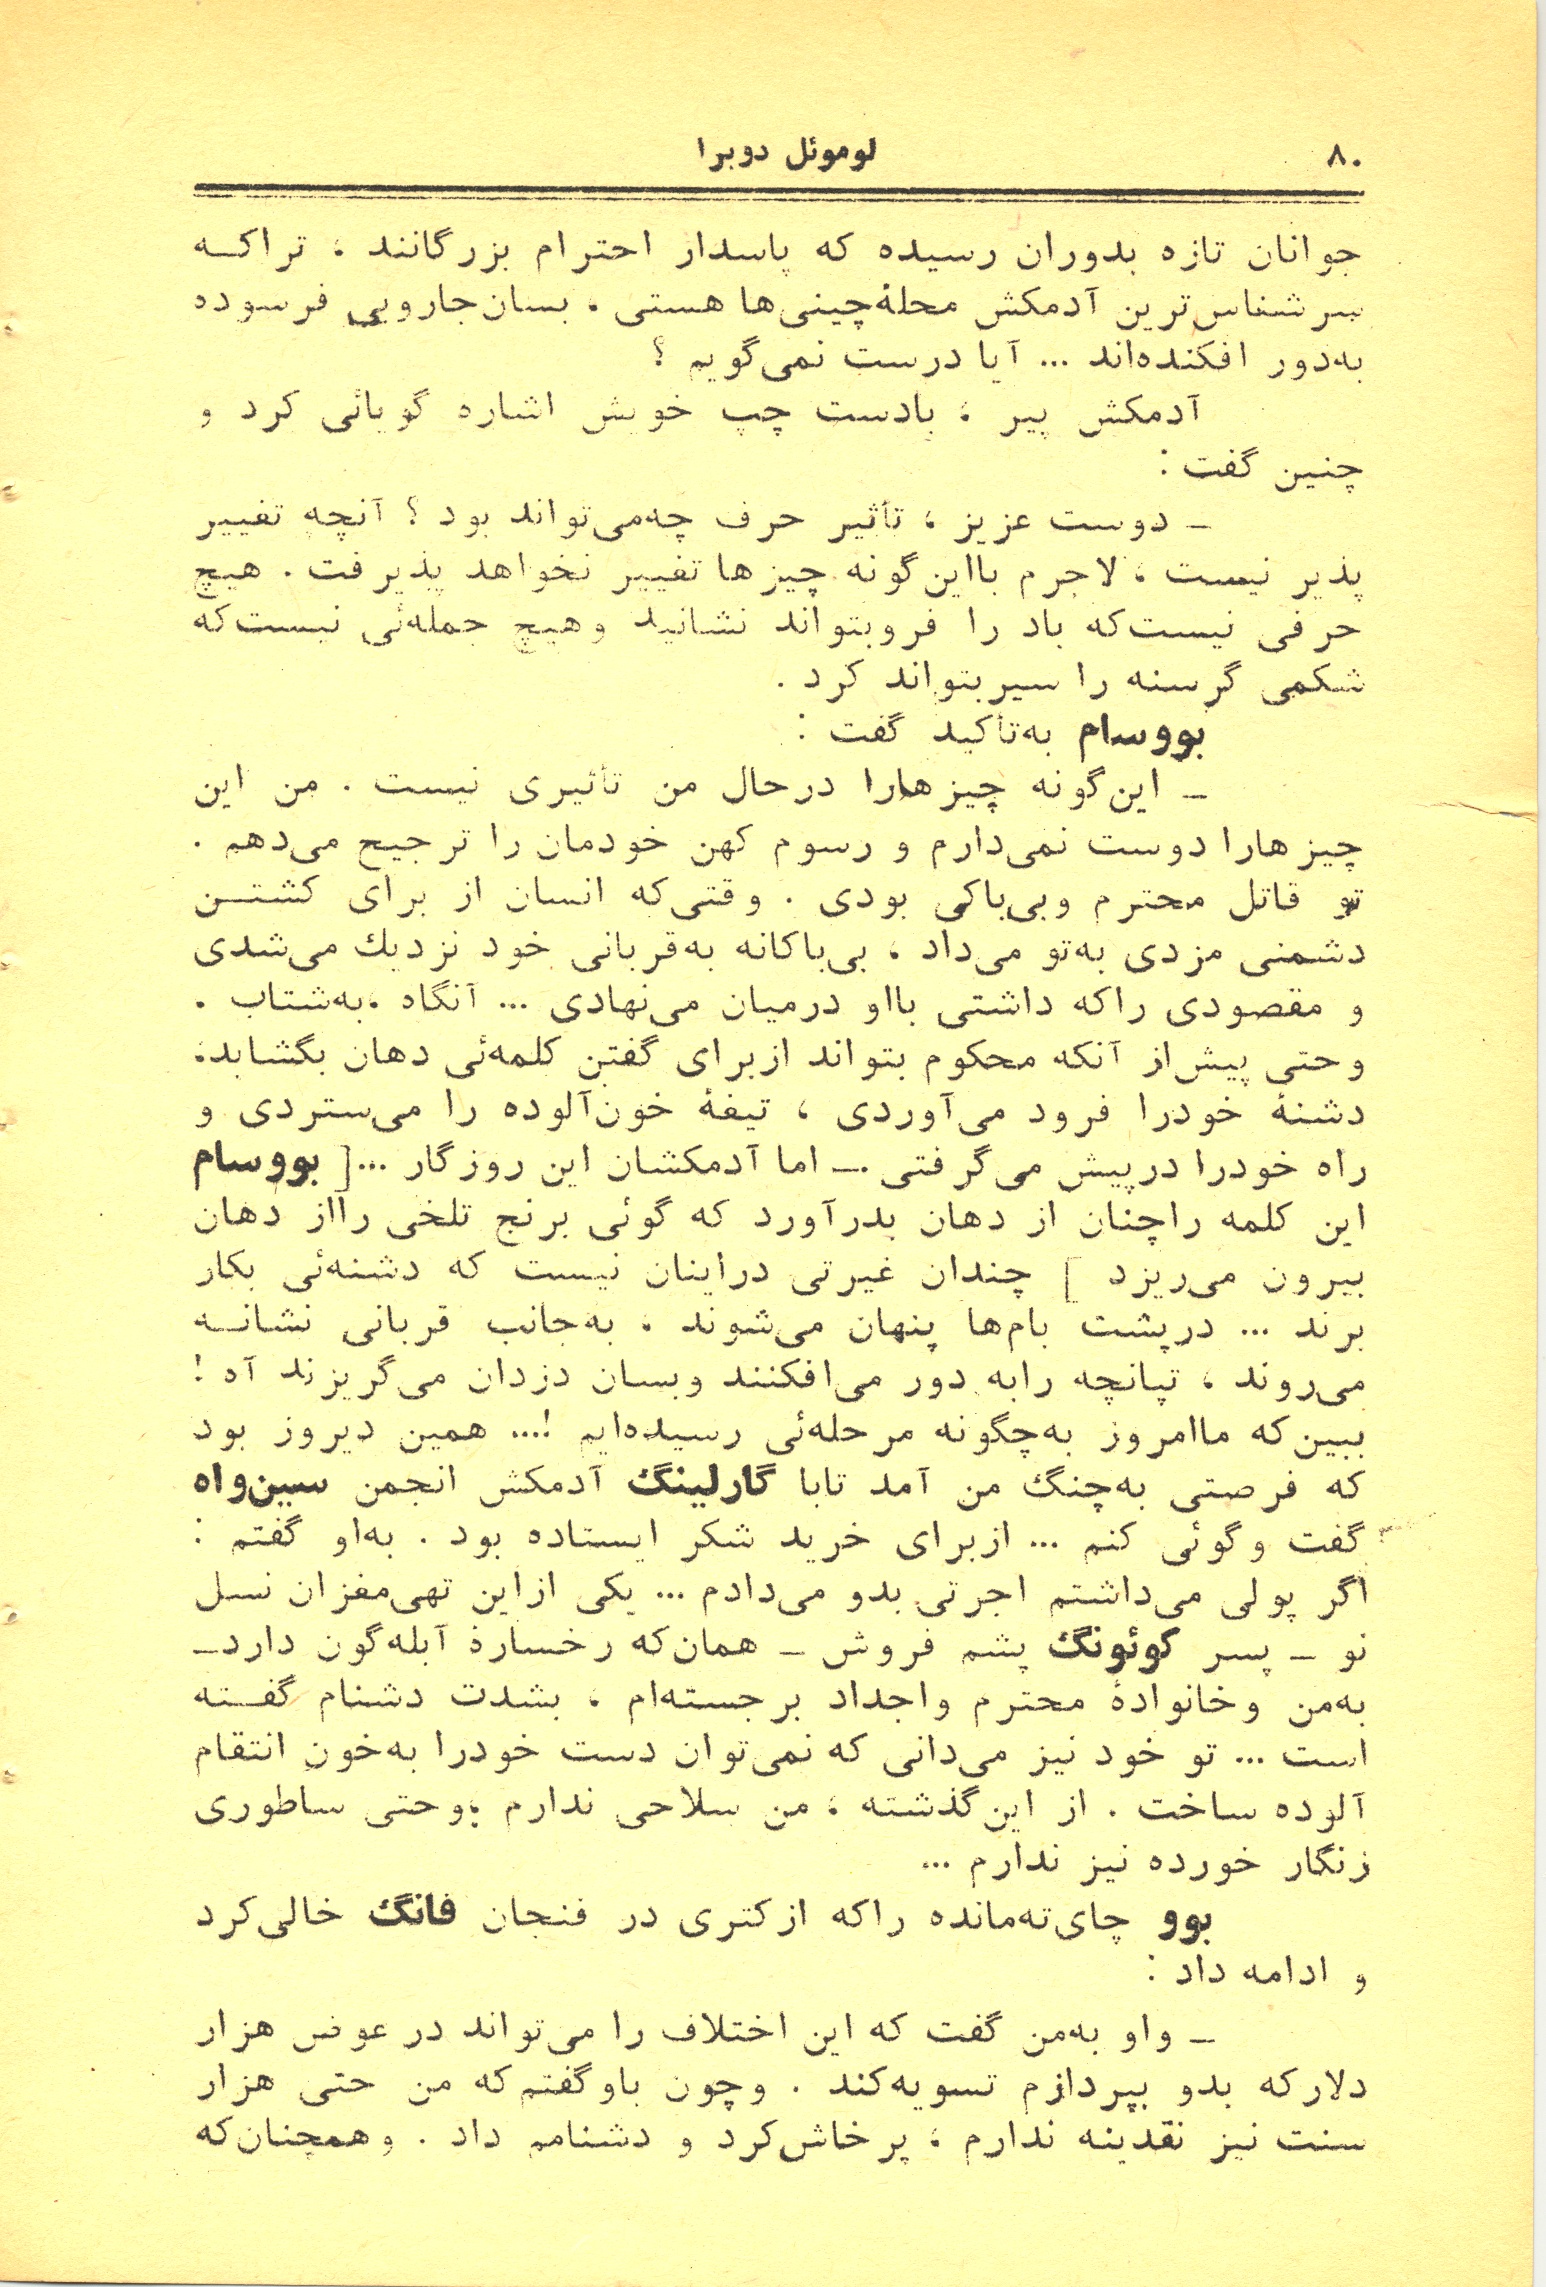 ۸۰
لوموئل دوبرا
جوانان تازه بدوران رسیده که پاسدار احترام بزرگانند ، تراکـه
سرشناس‌ترین آدمکش محلهٔ چینی‌ها هستی ، بسان جارویی فرسوده
به‌دور افکنده‌اند ... آیا درست نمی‌گویم ؟
آدمکش پیر ، بادست چپ خویش اشاره گویائی کرد و
چنین گفت :
ـ دوست عزیز ، تأثیر حرف چه‌می‌تواند بود ؟ آنچه تغییر
پذیر نیست ، لاجرم بااین‌گونه چیزها تغییر نخواهد پذیرفت . هیچ
حرفی نیست‌که باد را فروبتواند نشانید وهیچ جمله‌ئی نیست‌که
شکمی گرسنه را سیربتواند کرد .
بووسام به‌تأکید گفت :
ـ این‌گونه چیزهارا درحال من تأثیری نیست . من این
چیزهارا دوست نمی‌دارم و رسوم کهن خودمان را ترجیح می‌دهم .
تو قاتل محترم وبی‌باکی بودی . وقتی‌که انسان از برای کشتـن
دشمنی مزدی به‌تو می‌داد ، بی‌باکانه به‌قربانی خود نزدیك می‌شدی
و مقصودی راکه داشتی بااو درمیان می‌نهادی ... آنگاه .به‌شتاب .
وحتی پیش‌از آنکه محکوم بتواند ازبرای گفتن کلمه‌ئی دهان بگشاید،
دشنهٔ خودرا فرود می‌آوردی ، تیغهٔ خون‌آلوده را می‌ستردی و
راه خودرا درپیش می‌گرفتی .ـ اما آدمکشان این روزگار ...[ بووسام
این کلمه راچنان از دهان بدرآورد که گوئی برنج تلخی رااز دهان
بیرون می‌ریزد ] چندان غیرتی دراینان نیست که دشنه‌ئی بکار
برند ... درپشت بام‌ها پنهان می‌شوند ، به‌جانب قربانی نشانـه
می‌روند ، تپانچه رابه دور می‌افکنند وبسان دزدان می‌گریزند آه !
ببین‌که ماامروز به‌چگونه مرحله‌ئی رسیده‌ایم !... همین دیروز بود
که فرصتی به‌چنگ من آمد تابا گارلینگ آدمکش انجمن سین‌واه
گفت وگوئی کنم ... ازبرای خرید شکر ایستاده بود . به‌او گفتم :
اگر پولی می‌داشتم اجرتی بدو می‌دادم ... یکی ازاین تهی‌مغزان نسل
نو ـ پسر کوئونگ پشم فروش ـ همان‌که رخسارهٔ آبله‌گون داردـ
به‌من وخانوادهٔ محترم واجداد برجسته‌ام ، بشدت دشنام گفـته
است ... تو خود نیز می‌دانی که نمی‌توان دست خودرا به‌خون انتقام
آلوده ساخت . از این‌گذشته ، من سلاحی ندارم ؛وحتی ساطوری
زنگار خورده نیز ندارم ...
بوو چای‌ته‌مانده راکه ازکتری در فنجان فانگ خالی‌کرد
و ادامه داد :
ـ واو به‌من گفت که این اختلاف را می‌تواند در عوض هزار
دلارکه بدو بپردازم تسویه‌کند . وچون باوگفتم‌که من حتی هزار
سنت نیز نقدینه ندارم ، پرخاش‌کرد و دشنامم داد . وهمچنان‌که